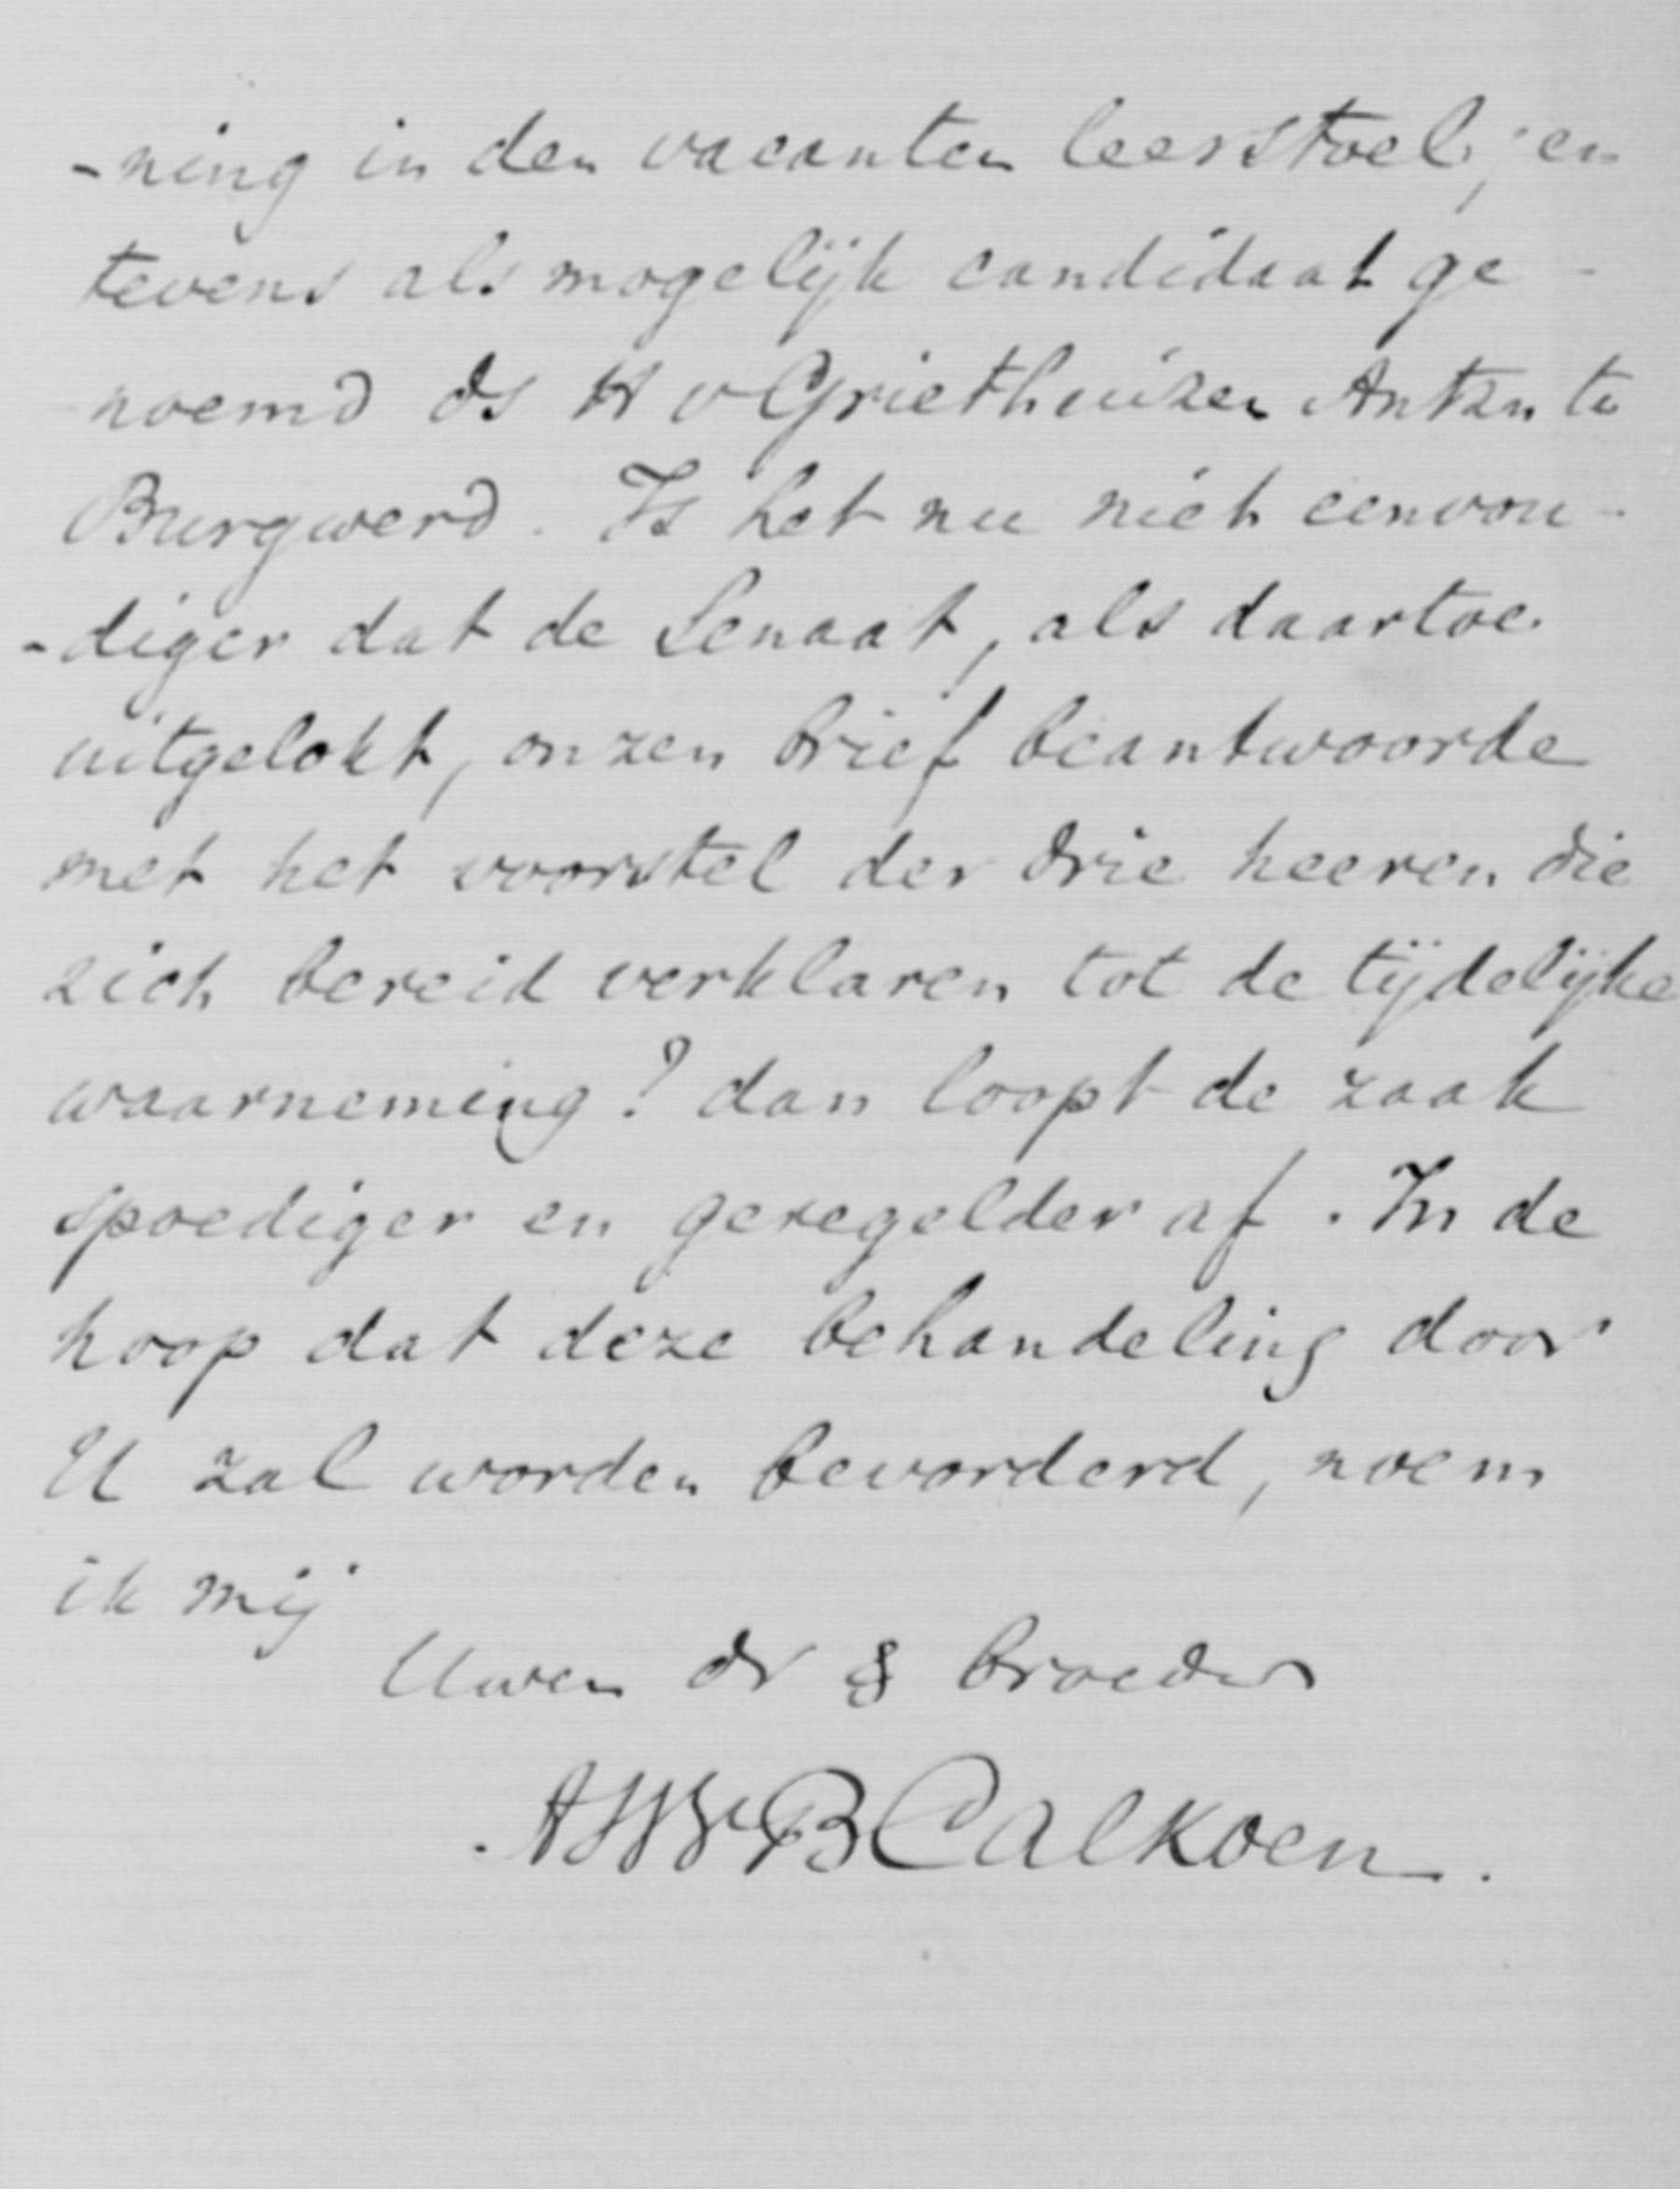 -ning in den vacanten leerstoel, en
tevens als mogelijk candidaat ge-
noemd ds H v Griethuizen Antzn te
Burgwerd. Is het nu niet eenvou-
-diger dat de Senaat, als daartoe
uitgelokt, onzen brief beantwoorde
met het voorstel der drie heeren die
zich bereid verklaren tot de tijdelijke
waarneming? dan loopt de zaak
spoediger en geregelder af. In de
hoop dat deze behandeling door
U zal worden bevorderd, noem
ik mij
Uwen dr & broeder
Calkoen.